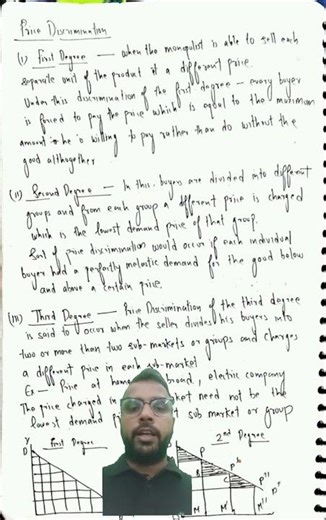 Price Discrimination
(i) First Degree — when the monopolist is able to sell each
separate unit of the product at a different price.
Under this discrimination of the first degree — every buyer
is forced to pay the price which is equal to the maximum
amount he is willing to pay rather than do without the
good altogether
(ii) Second Degree — In this buyers are divided into different
groups and from each group a different price is charged
which is the lowest demand price of that group.
Sort of price discrimination would occur if each individual
buyer had a perfectly inelastic demand for the good below
and above a certain price.
(iii) Third Degree — Price Discrimination of the third degree
is said to occur when the seller divides his buyers into
two or more than two sub-markets or groups and charges
a different price in each sub-market
Ex - Price at home abroad, electric company
The price charged in market need not be the
lowest demand sub market or group
Y First Degree 2nd Degree
D P
P"
P'''
M M' M"